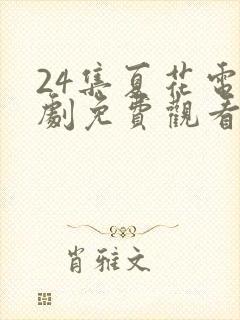 24集夏花電
劇免費觀看
肖雅文